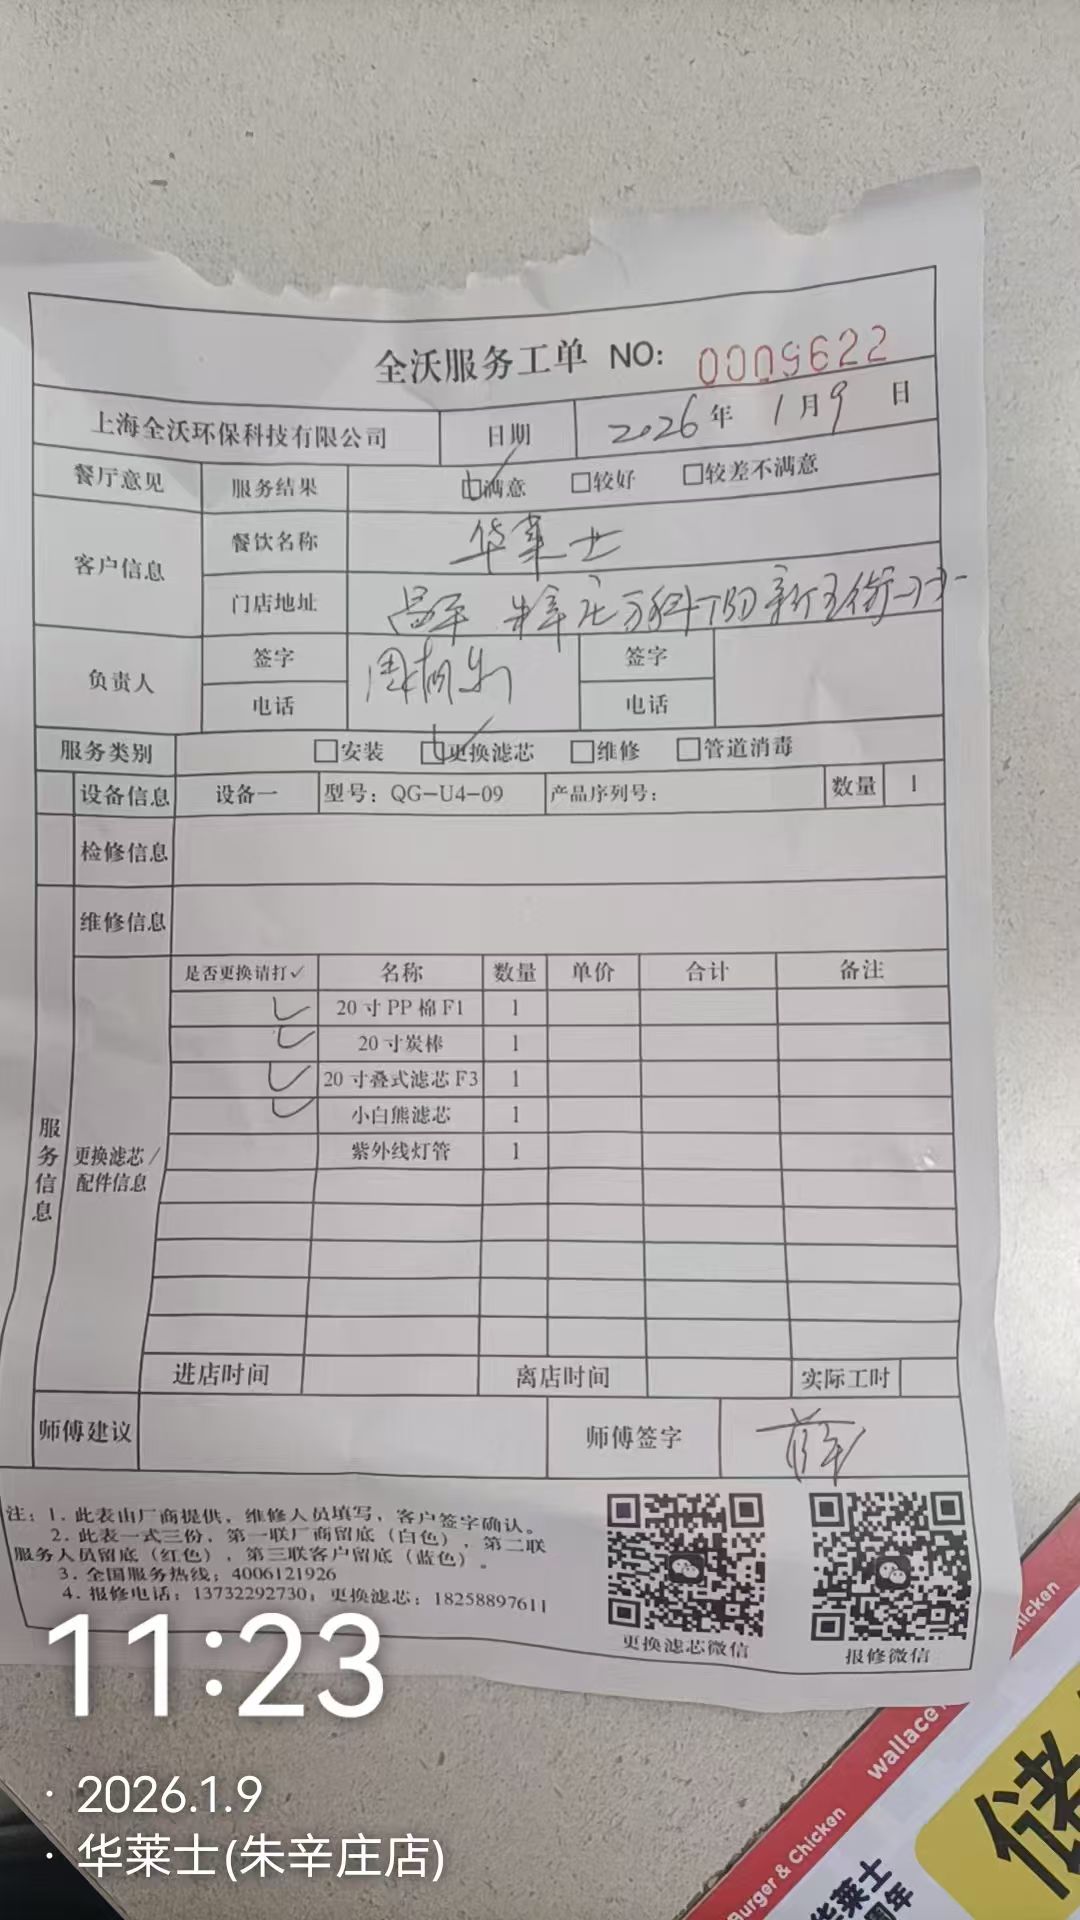 全沃服务工单 NO: 0009622
上海全沃环保科技有限公司 日期 2026年 1月9日
餐厅意见 服务结果 ☑满意 □较好 □较差不满意
客户信息 餐饮名称 华莱士
门店地址 昌平 朱辛庄万科
负责人 签字 周 签字
电话 电话
服务类别 □安装 ☑更换滤芯 □维修 □管道消毒
设备信息 设备一 型号：QG-U4-09 产品序列号： 数量 1
检修信息
维修信息
服务信息
更换滤芯/配件信息
是否更换请打✓ 名称 数量 单价 合计 备注
✓ 20寸PP棉F1 1
✓ 20寸炭棒 1
✓ 20寸叠式滤芯F3 1
✓ 小白熊滤芯 1
紫外线灯管 1
进店时间 离店时间 实际工时
师傅建议 师傅签字
注：1. 此表由厂商提供，维修人员填写，客户签字确认。
2. 此表一式三份，第一联厂商留底（白色），第二联
服务人员留底（红色），第三联客户留底（蓝色）。
3. 全国服务热线：4006121926
4. 报修电话：13732292730；更换滤芯：18258897611
更换滤芯微信
报修微信
11:23
· 2026.1.9
· 华莱士(朱辛庄店)
hicken
wallace
Burger & Chicken
华莱士
周年
储